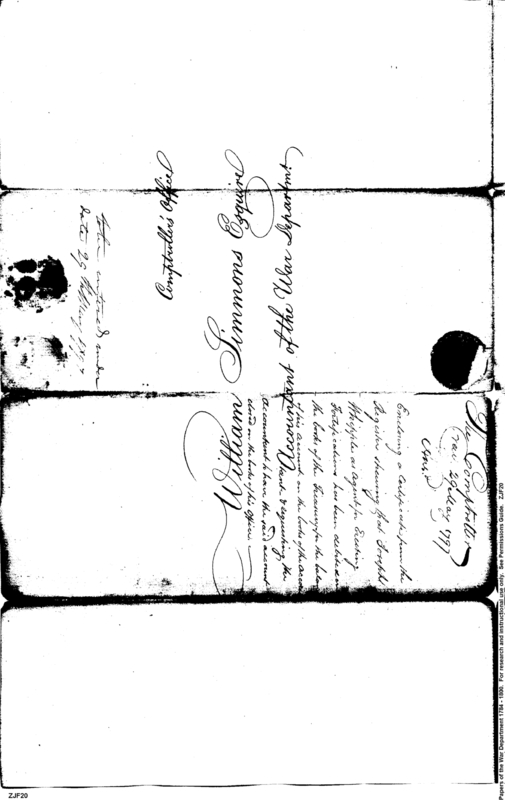 William Simmons Esquire
Accountant of the War Department
Comptroller's Office
The Comptroller
rec 29 May 1797
Enclosing a Certificate from the
Register shewing that Joseph
Whipple as agent for Erecting
Fortifications has been debited on
the books of the Treasury for the bala
of his account on the books of the Accoun
tant & requesting the
accountant to have the said account
closed on the books of his Office
ZJF20
Papers of the War Department 1784 - 1800. For research and instructional use only. See Permissions Guide. ZJF20